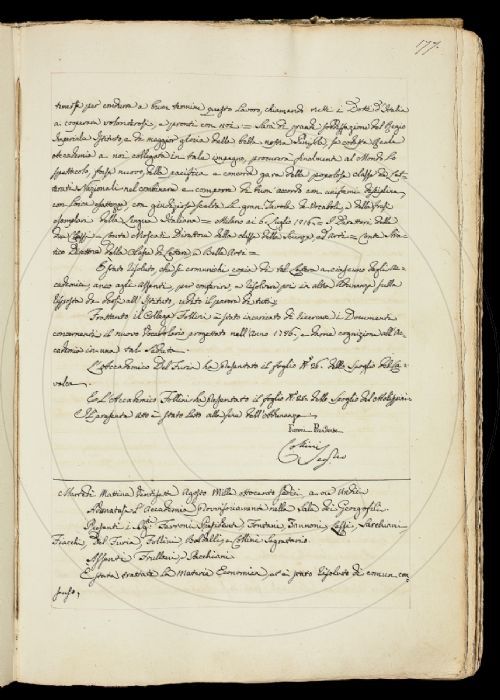 177.
temesse per condurre a buon termine questo lavoro, chiamando tutti i Dotti d'Italia
a cooperare volonterosi, e pronti con noi = Sarà di grande soddisfazione del Regio
Imperiale Istituto, e di maggior gloria della bella nostra Penisola se cotesta Reale
Accademia a noi collegata in tale impegno, procurerà finalmente al Mondo lo
spettacolo, forse nuovo, della pacifica e concorde gara della popolosa classe dei Let-
terati Nazionali nel continuare e comporre di buon accordo con uniforme disciplina,
con loica esattezza con giudiziosa scelta la gran Tavola de Vocaboli, e delle frasi
esemplari della Lingua Italiana = Milano ai 6. Luglio 1816 = I Direttori delle
due Classi = Conte Moscati Direttore della classe delle Scienze, ed Arti = Conte Stra-
tico Direttore della Classe di Lettere, e Belle Arti =
È stato risoluto, che si comunichi copia di tal Lettera a ciascuno degli Ac-
cademici, anco agli assenti, per conferire, e risolvere poi in altra Adunanza sulla
risposta da darsi all'Istituto, udito il parere di tutti.
Frattanto il Collega Follini è stato incaricato di ricercare i Documenti
concernenti il nuovo Vocabolario progettato nell'Anno 1786, e darne cognizione all'Ac-
cademia in una tal Seduta.
L'Accademico Del Furia ha presentato il foglio N.º 26. dello Spoglio del Ca-
valca.
E l'Accademico Follini ha presentato il foglio N.º dello Spoglio del
E il presente Atto è stato letto alla fine dell'Adunanza.
Ferroni Presidente
Collini
Segr.rio
Martedì Mattina Ventisette Agosto Mille ottocento sedici, a ore Undici
Adunatasi l'Accademia provvisoriamente nella Sala dei Georgofili.
Presenti i SS.ri Ferroni Presidente, Fontani, Zannoni, Lessi, Sarchiani
Fiacchi, Del Furia, Follini, Baldelli, e Collini Segretario.
Assenti Frullani, e Pacchiani.
È stata trattata la Materia Economica, ed è stato risoluto di comun con-
senso,